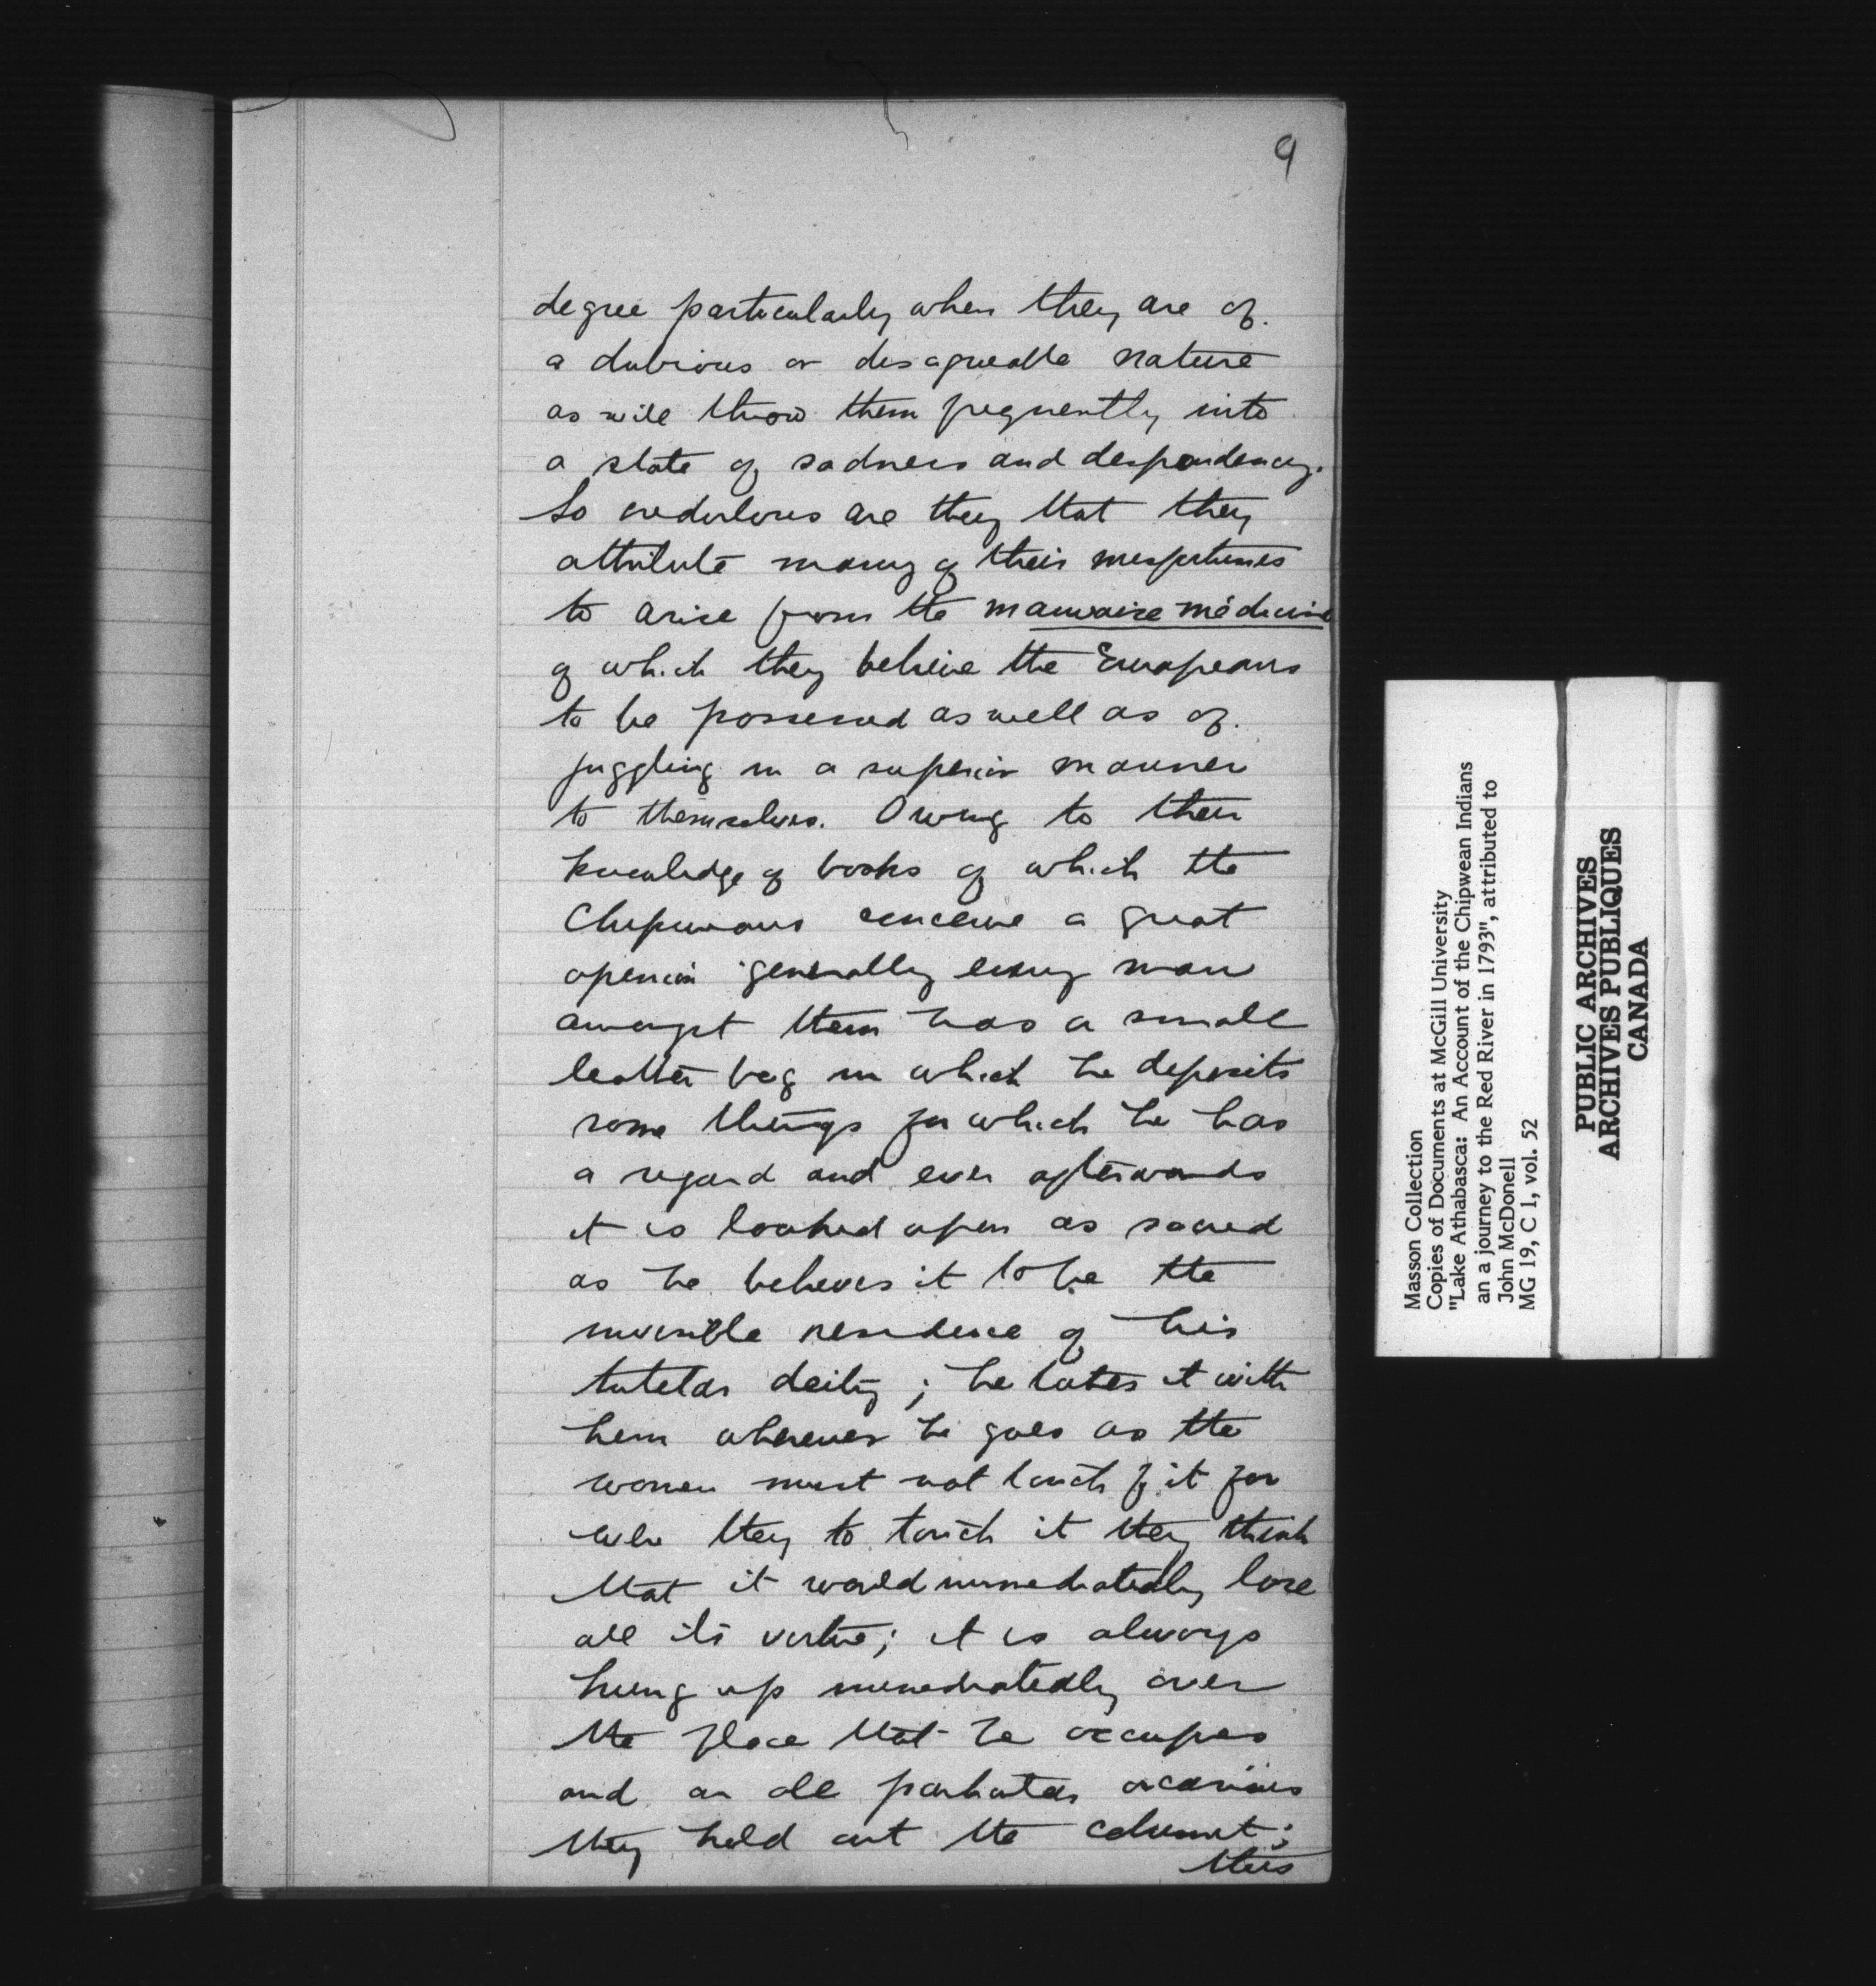 9
degree particularly when they are of
a dubious or disagreeable nature
as will throw them frequently into
a state of sadness and despondency.
So credulous are they that they
attribute many of their misfortunes
to arise from the mauvaise médicine
of which they believe the Europeans
to be possessed as well as of
juggling in a superior manner
to themselves. Owing to their
knowledge of books of which the
Chipweans conceive a great
opinion generally every man
amongst them has a small
leather bag in which he deposits
some things for which he has
a regard and ever afterwards
it is looked upon as sacred
as he believes it to be the
invisible residence of his
tutelar deity; he takes it with
him wherever he goes as the
women must not touch it for
were they to touch it they think
that it would immediately lose
all its virtue; it is always
hung up immediately over
the place that he occupies
and on all particular occasions
they hold out the calumet;
this
Masson Collection
Copies of Documents at McGill University
"Lake Athabasca: An Account of the Chipwean Indians
an a journey to the Red River in 1793", attributed to
John McDonell
MG 19, C 1, vol. 52
PUBLIC ARCHIVES
ARCHIVES PUBLIQUES
CANADA